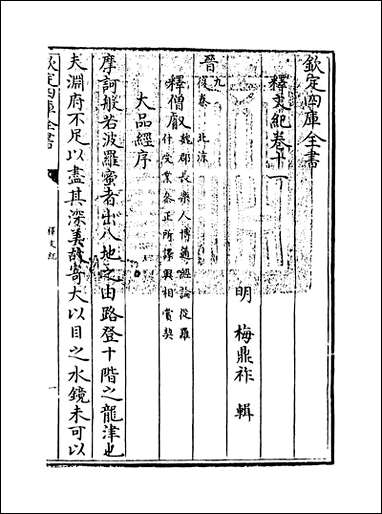 欽定四庫全書
釋文紀卷十一
明 梅鼎祚 輯
晉九
後秦 北涼
釋僧叡
魏郡長樂人博通經論從羅
什定業參正所譯興相賞契
大品經序
摩訶般若波羅蜜者出八地之由路登十階之龍津也
夫淵府不足以盡其深美故寄大以目之水鏡未可以
欽定四庫全書
釋文紀
一